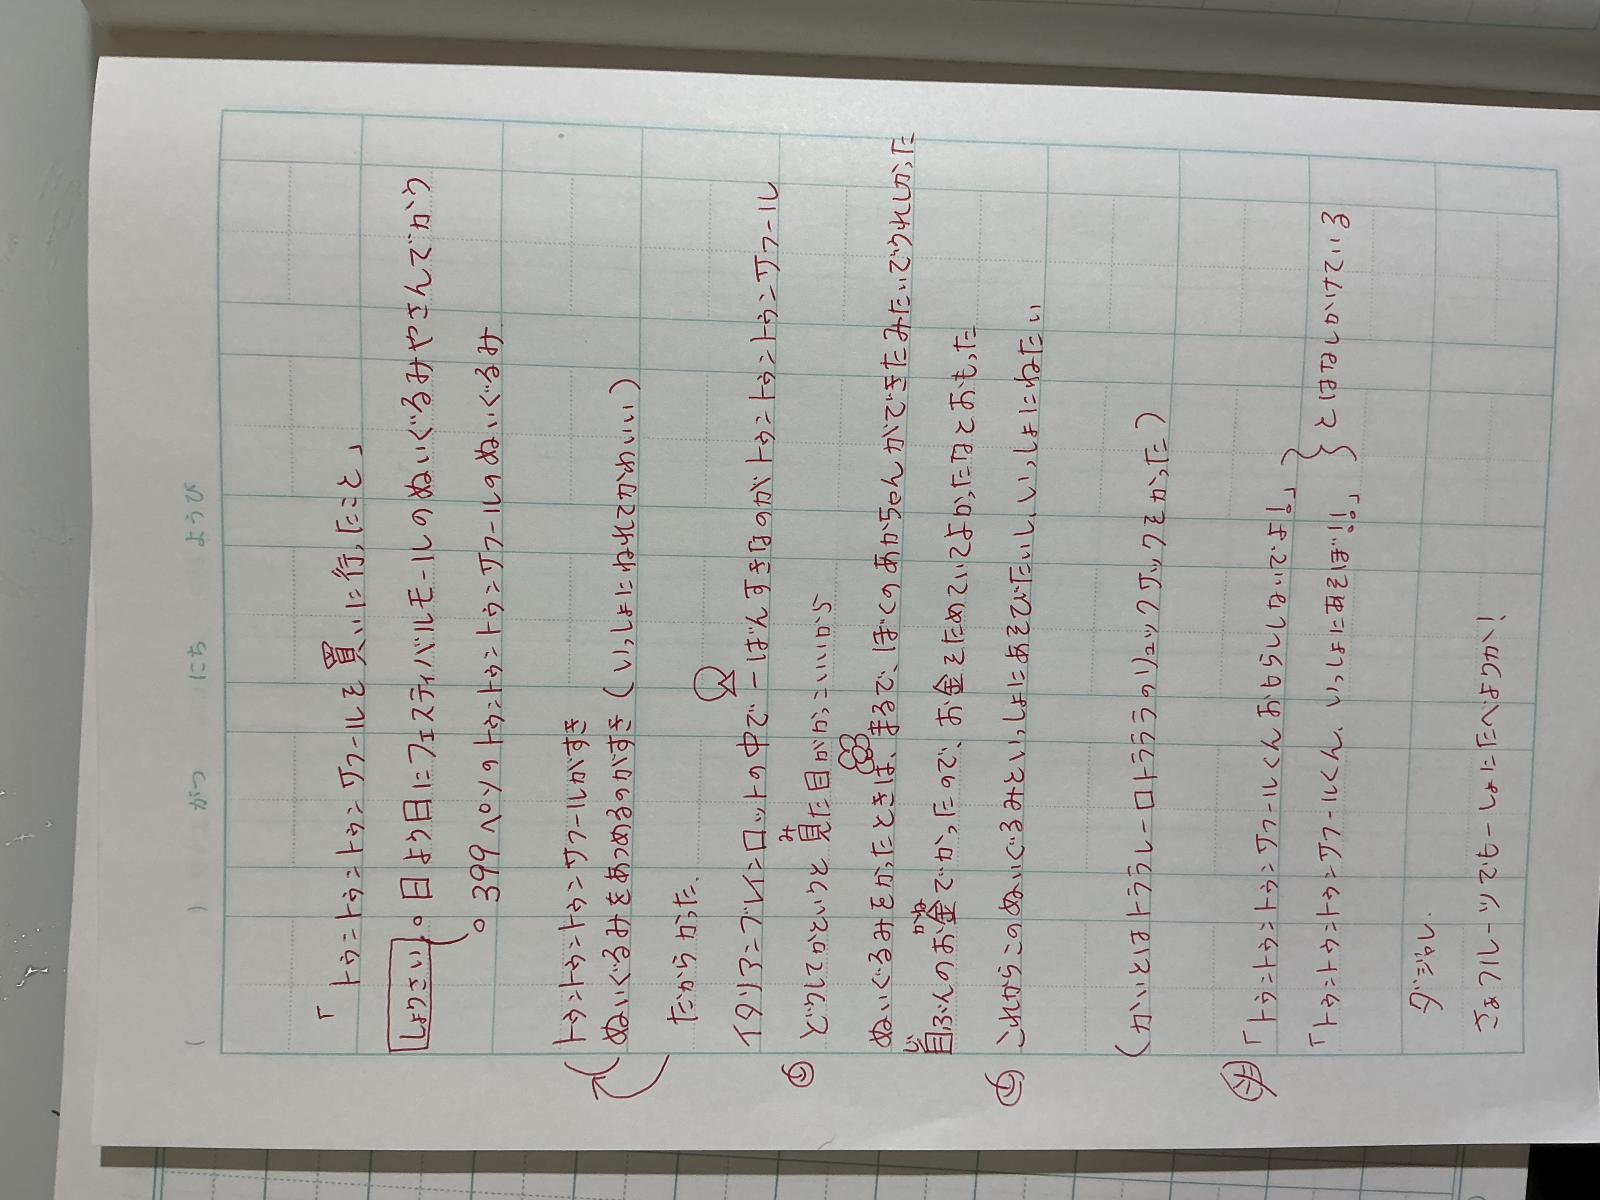 ( がつ にち ようび )
「トゥントゥントゥンサフールを買いに行ったこと」
しょうさい 。日よう日にフェスティバルモールのぬいぐるみやさんでかう
。399ペソのトゥントゥントゥンサフールのぬいぐるみ
トゥントゥントゥンサフールがすき
ぬいぐるみをあつめるのがすき(いっしょにねれてかわいい)
だからかった.
イタリアンブレインロットの中で一ばんすきなのがトゥントゥントゥンサフール
どうしてかというと見た目がかっこいいから
み
ぬいぐるみをかったときは、まるで、ぼくのあかちゃんができたみたいでうれしかった
自ぶんのお金でかったので、お金をためていてよかったなとおもった
じ かね
これからこのぬいぐるみといっしょにあそびたいし、いっしょにねたい
(かいとはトララレーロトラララのリュックサックをかった)
「トゥントゥントゥンサフールくんおもらししないでよ。!」
「トゥントゥントゥンサフールくん、いっしょにあそぼ!。!」
とはなしかけている
さぁフルーツでも一しょにたべようか!